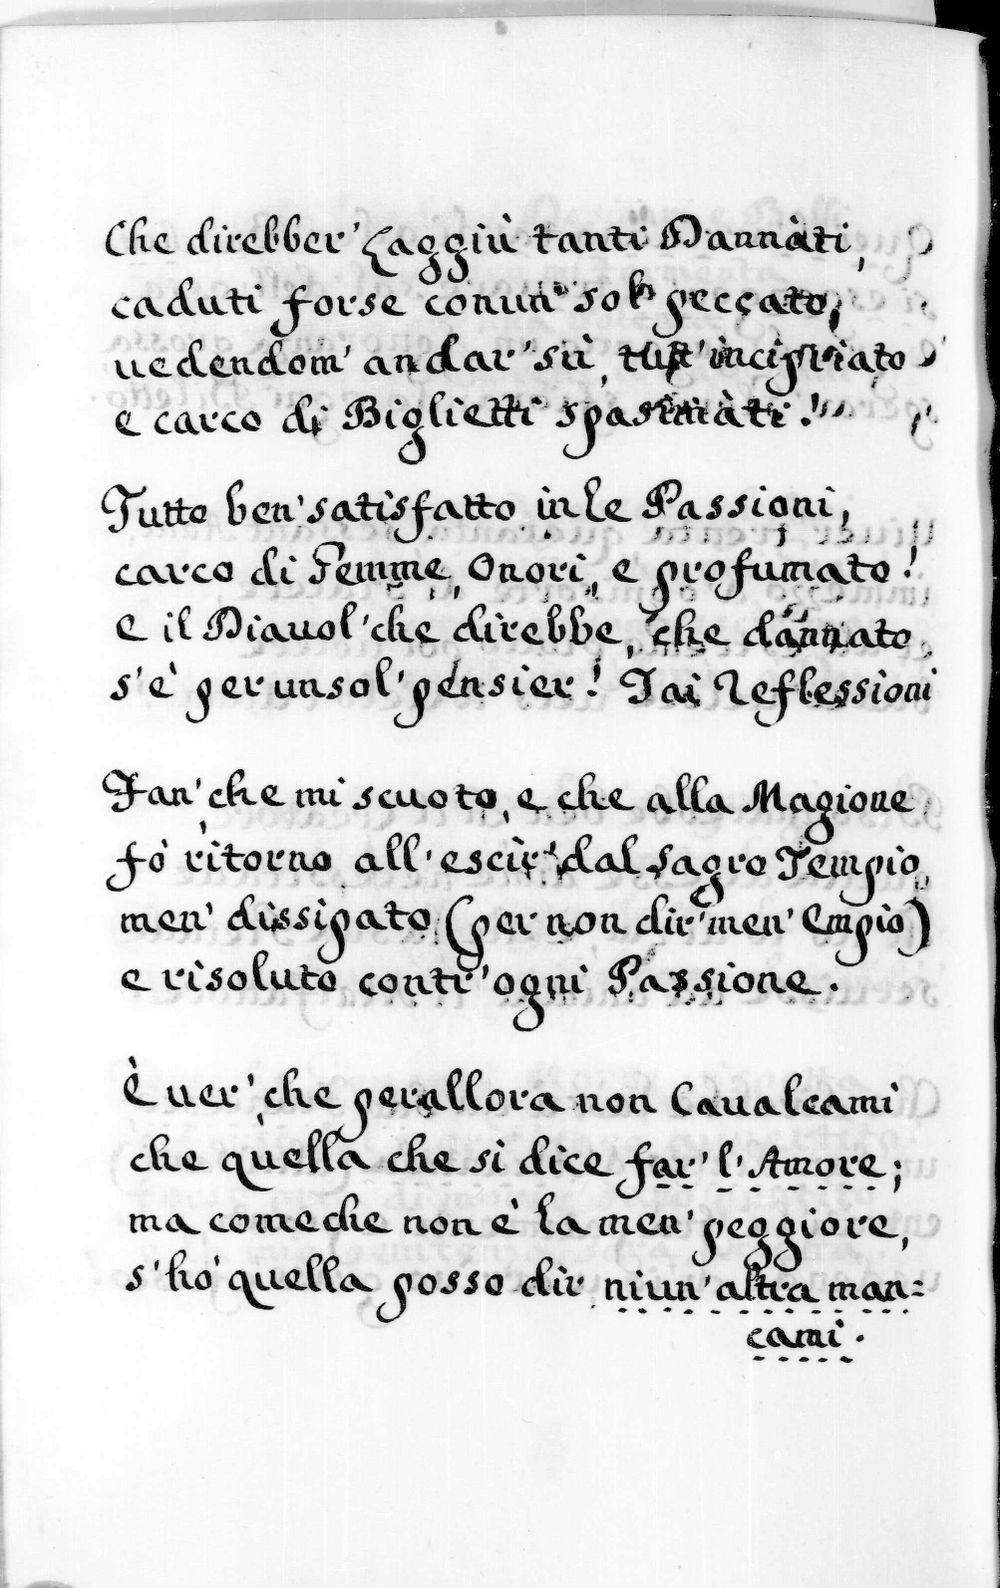 Che direbber' Laggiù tanti Dannàti,
caduti forse conun' sol' peccato,
uedendom' andar' sù, tutt' incipriato
e carco di Biglietti spasimàti!
Tutto ben' satisfatto in le Passioni,
carco di Femme, Onori, e profumato!
e il Diauol' che direbbe, che dannato
s'è per unsol' pensier! Tai Reflessioni
Fan' che mi scuoto, e che alla Magione
fò ritorno all' escir' dal sagro Tempio,
men' dissipato (per non dir' men' Empio)
e risoluto contr' ogni Passione.
È uer' che perallora non Caualcami
che quella che si dice far' l' Amore;
ma come che non è la men' peggiore,
s' hò quella posso dir niun' altra man=
cami.